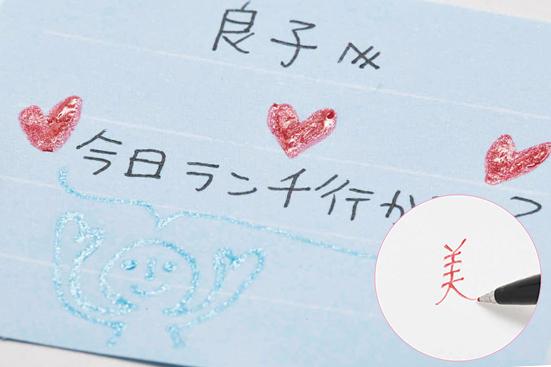 良子へ
今日ランチ行か
美